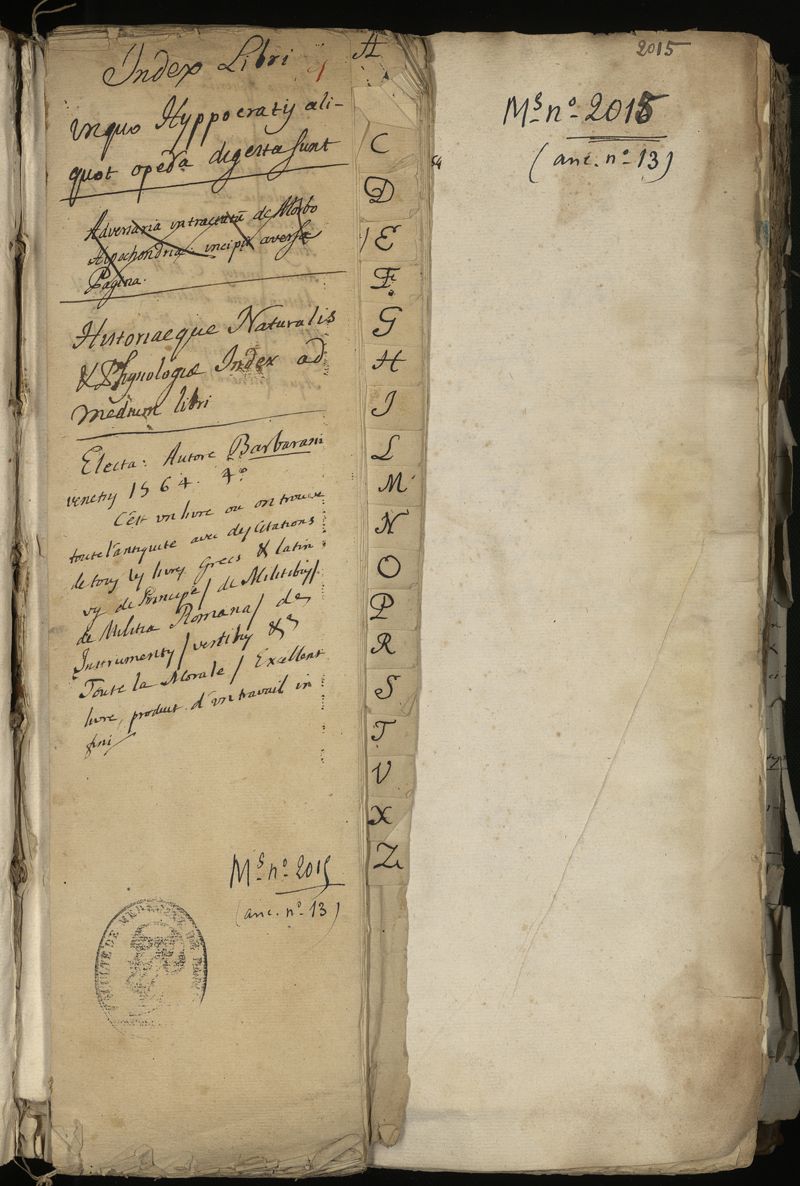 Index Libri
inquo Hyppocratis ali-
quot opera digesta sunt
Adversaria in tractatū de Morbo
Hipochondria: incipit aversa
Pagina.
Historiaeque Naturalis
& Phythologiæ Index ad
medium libri
Electa: Autore Barbarani
venetiis 1564. 4°
C'est un livre ou on trouve
toute l'antiquite avec des Citations
de tous les livres Grecs & latin
de Principe / de Militibus /
de Militia Romana / de
Instrumentis / vestibus &
Toute la Morale / Excellent
livre, produit d'un travail in
fini
Ms n° 2015
(anc. n° 13)
FACULTÉ DE MEDECINE DE PARIS
A
C
D
E
F.
G
H
I
L
M
N
O
P
R
S
T
V
X
Z
2015
Ms n° 2015
(anc. n° 13)